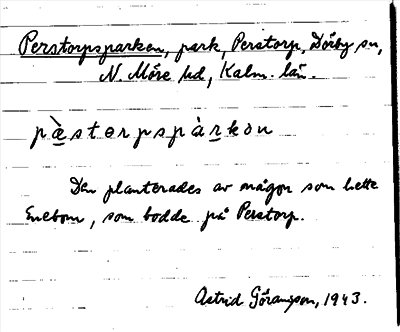 Perstorpsparken, park, Perstorp, Dörby sn,
N. Möre hd, Kalm. län.
pæ̀storpspàrkon
Den planterades av någon som hette
Enebom, som bodde på Perstorp.
Astrid Göransson, 1943.